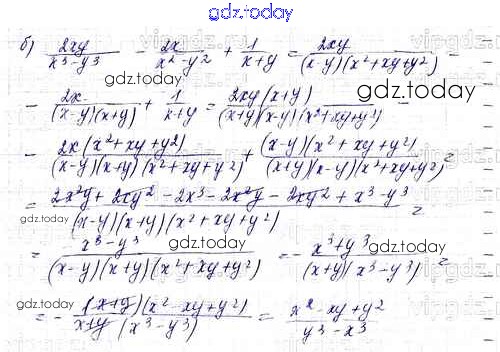 gdz.today
б) 2xy/(x³-y³) - 2x/(x²-y²) + 1/(x+y) = 2xy/((x-y)(x²+xy+y²)) -
- 2x/((x-y)(x+y)) + 1/(x+y) = 2xy(x+y)/((x+y)(x-y)(x²+xy+y²)) -
- 2x(x²+xy+y²)/((x-y)(x+y)(x²+xy+y²)) + (x-y)(x²+xy+y²)/((x+y)(x-y)(x²+xy+y²)) =
= (2x²y + 2xy² - 2x³ - 2x²y - 2xy² + x³ - y³)/((x-y)(x+y)(x²+xy+y²)) =
= (-x³-y³)/((x-y)(x+y)(x²+xy+y²)) = - (x³+y³)/((x+y)(x³-y³)) =
= - (x+y)(x²-xy+y²)/((x+y)(x³-y³)) = (x²-xy+y²)/(y³-x³)